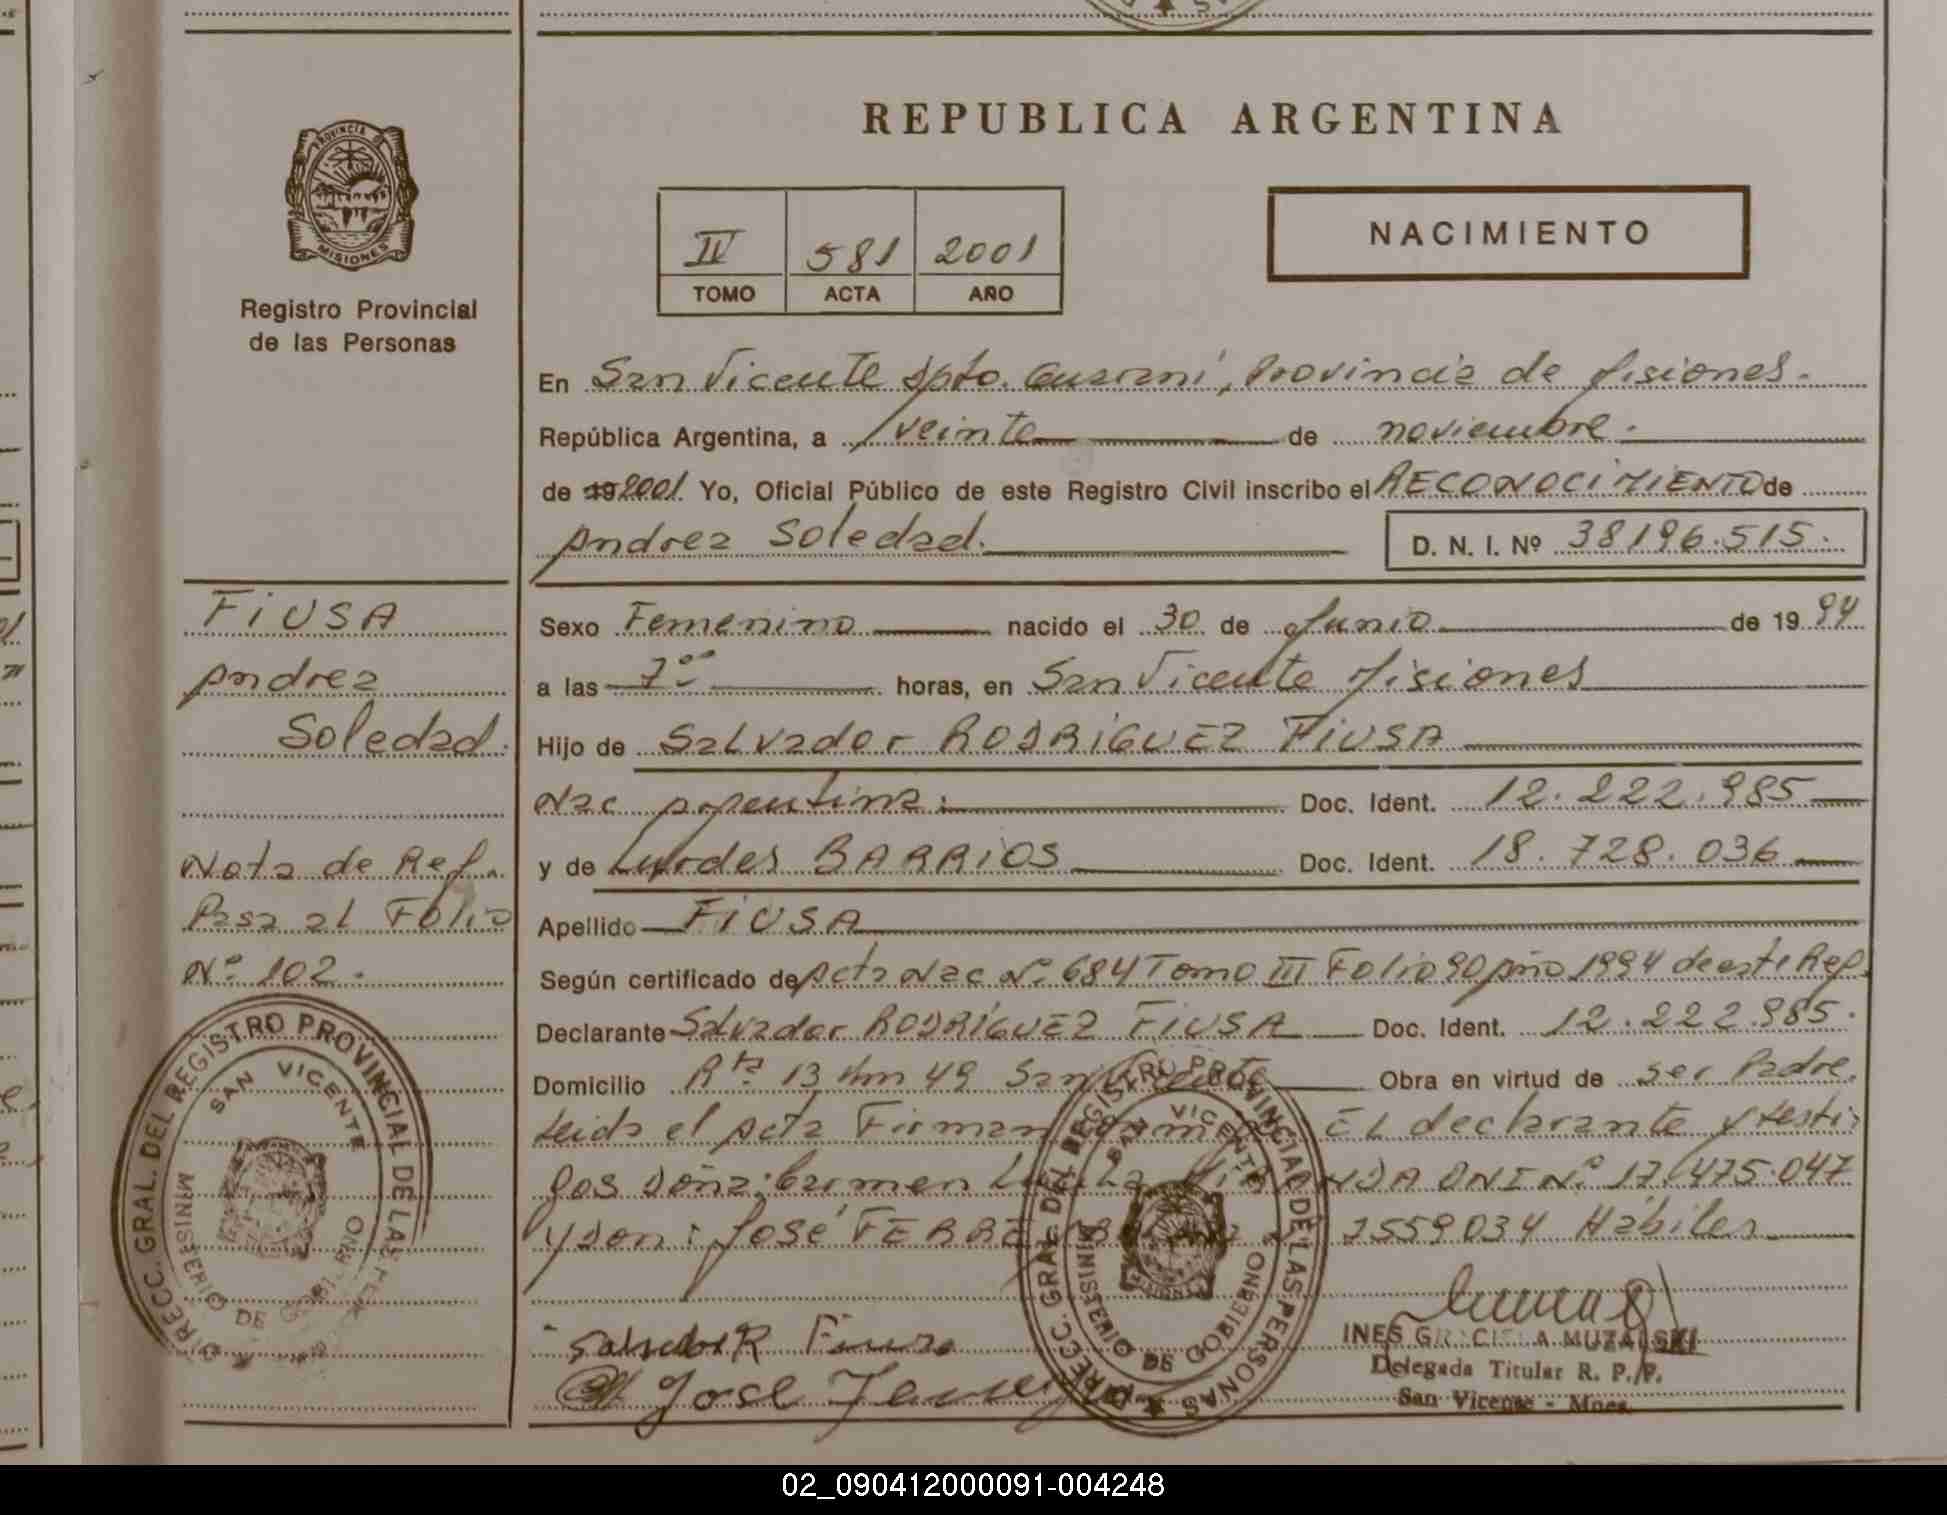 REPUBLICA ARGENTINA
PROVINCIA DE
MISIONES
Registro Provincial
de las Personas
IV 581 2001
TOMO ACTA AÑO
NACIMIENTO
En San Vicente Dpto. Guaraní, Provincia de Misiones.
República Argentina, a veinte de noviembre.
de 19 2001. Yo, Oficial Público de este Registro Civil inscribo el RECONOCIMIENTO de
Andrea Soledad. D. N. I. Nº 38196.515.
FIUSA
Andrea
Soledad.
Nota de Ref.
Pasa al Folio
Nº 102.
Sexo Femenino nacido el 30 de Junio de 19 94
a las 7 horas, en San Vicente Misiones
Hijo de Salvador RODRIGUEZ FIUSA
Nac Argentina. Doc. Ident. 12.222.985
y de Lurdes BARRIOS Doc. Ident. 18.728.036
Apellido FIUSA
Según certificado de Acta Nac Nº 684 Tomo III Folio 90 Año 1994 de este Reg.
Declarante Salvador RODRIGUEZ FIUSA Doc. Ident. 12.222.985.
Domicilio Rta 13 Km 49 San Vicente Obra en virtud de ser Padre.
Leida el acta Firman El declarante y testi
gos Doña: Carmen DNI Nº 17.475.047
y don: José 7559034 Hábiles
Salvador Fiusa
José
INES GRACIELA MUZALSKI
Delegada Titular R. P. P.
San Vicente - Mnes.
DIRECC. GRAL. DEL REGISTRO PROVINCIAL DE LAS
SAN VICENTE
MINISTERIO DE GOBIERNO
DIRECC. GRAL. DEL REGISTRO PROVINCIAL DE LAS PERSONAS
SAN VICENTE
MINISTERIO DE GOBIERNO
02_090412000091-004248